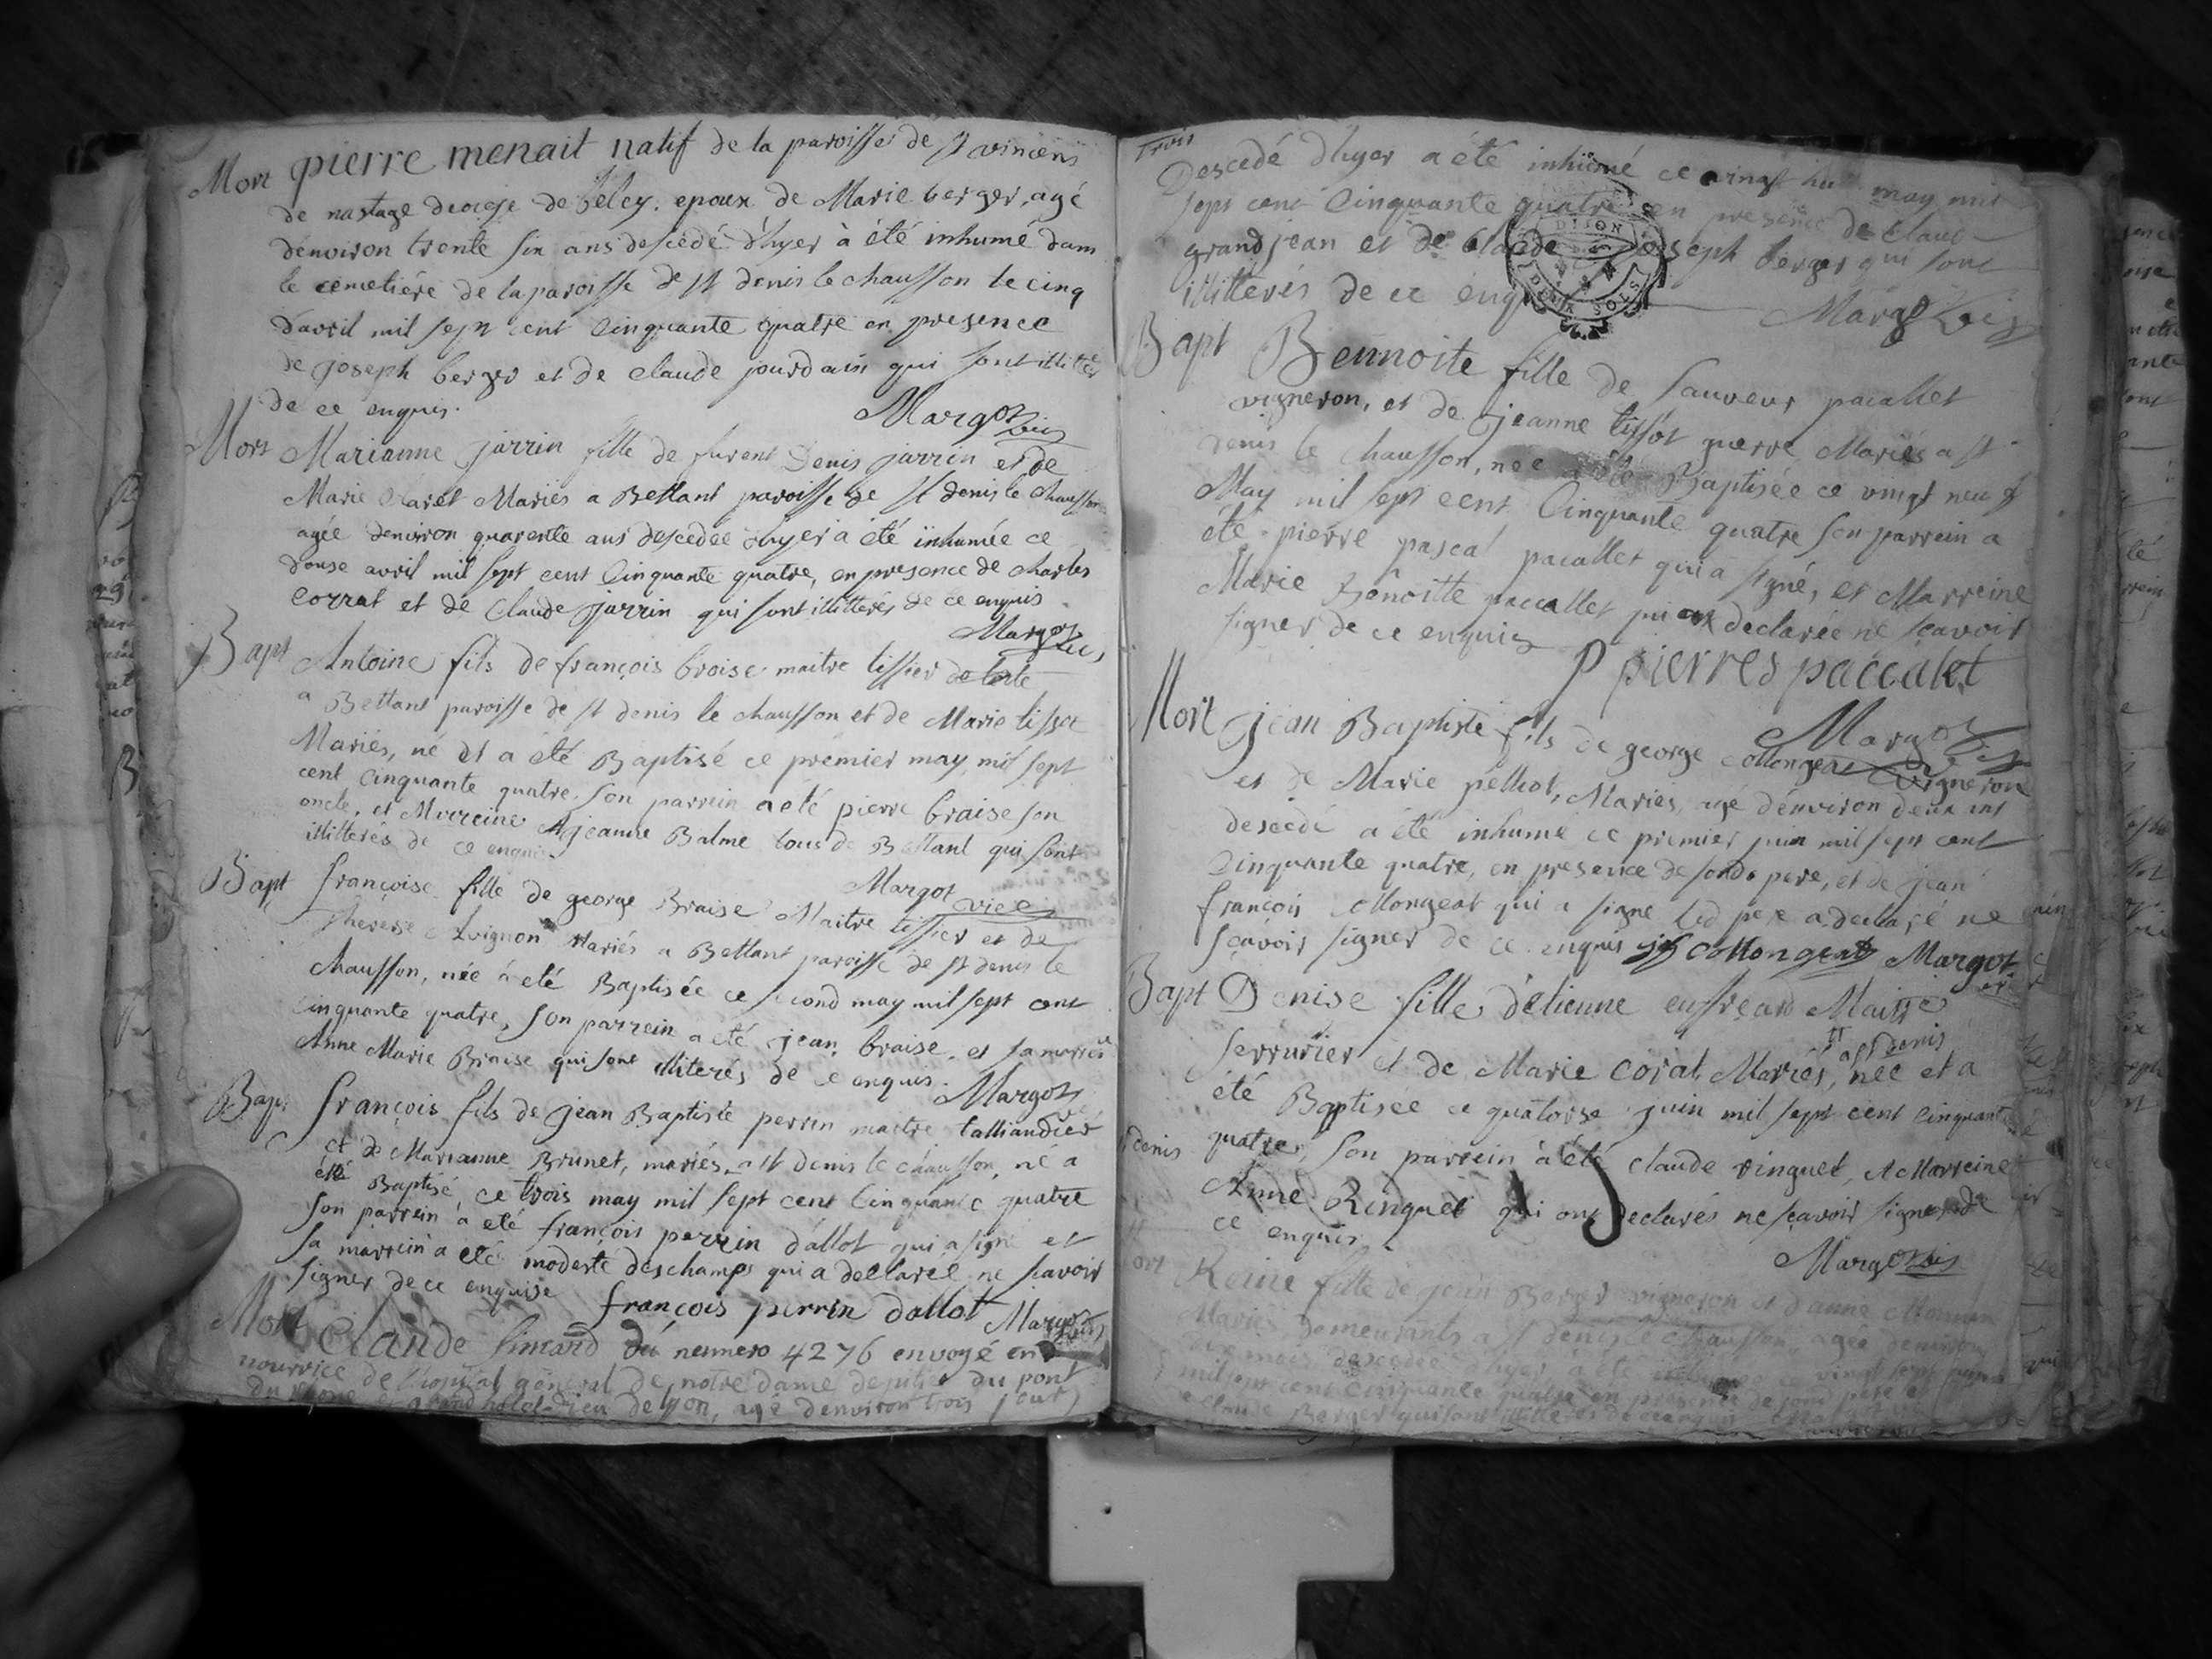 Mort pierre menait natif de la paroisse de st vincent
de nastage diocese de beley. epoux de Marie berger, agé
denviron trente six ans descedé d'hyer à été inhumé dans
le cemetiére de la paroisse de st denis le chausson le cinq
davril mil sept cent Cinquante quatre en presence
de joseph berger et de claude jourdain qui sont illiterés
de ce enquis.
Margot vic
Mort Marianne jarrin fille de furent Denis jarrin et de
Marie Claret Mariés a Bettant paroisse de st denis le chausson
agée denviron quarente ans descedée d'hyer a été inhumée ce
douse avril mil sept cent Cinquante quatre, en presence de charles
corrat et de Claude jarrin qui sont illitterés de ce enquis
Margot vic
Bapt Antoine fils de françois broise maitre tissier de toile
a Bettant paroisse de st denis le chausson et de Marie tissot
Mariés, né et a été Baptisé ce premier may mil sept
cent Cinquante quatre. son parrein a eté pierre braise son
oncle, et Marreine jeanne Balme tous de Bettant qui sont
illitterés de ce enquis
Margot vic
Bapt françoise fille de george Braise Maitre tissier et de
Therese Avignon Mariés a Bettant paroisse de st denis le
chausson, née à eté Baptisée ce second may mil sept cent
Cinquante quatre, son parrein a eté jean braise, et sa marreine
Anne Marie Braise qui sont illiterés de ce enquis.
Margot vic
Bapt françois fils de jean Baptiste perrin maitre talliandier
et de Marianne Brunet, mariés, a st denis le chausson, né a
été Baptisé ce trois may mil sept cent Cinquante quatre
son parrein a eté françois perrin dallot qui a signé et
sa marrein a eté modeste deschamps qui a declareé ne scavoir
signer de ce enquise
françois perrin dallot Margot vic
Mort Claude simard du numero 4276 envoyé en
nourrice de l'hopital général de notre dame de pitié du pont
du rhone et grand hotel-dieu de lyon, agé denviron trois jours
trois
Descedé d'hyer a été inhumé ce vingt huit may mil
sept cent Cinquante quatre en presence de Claude
grandjean et de joseph berger qui sont
illitterés de ce enquis
Margot vic
DIJON
DEUX SOLS
Bapt Bennoite fille de sauveur pacallet
vigneron, et de jeanne tissot guerre Mariés a st
denis le chausson, née a été Baptisée ce vingt neuf
May mil sept cent Cinquante quatre son parrein a
été pierre pascal pacallet qui a signé, et Marreine
Marie Benoitte paccallet qui a declarée ne scavoir
signer de ce enquis
P pierres paccalet
Margot vic
Mort jean Baptiste fils de george Collongeat vigneron
et de Marie pelliot, Mariés, agé d'environ deux ans
descedé a été inhumé ce premier juin mil sept cent
Cinquante quatre, en presence de sond. pere, et de jean
françois Collongeat qui a signé led pere a declaré ne
scavoir signer de ce enquis jf collongeat Margot vic
Bapt Denise fille d'etienne enfreard Maitre
serrurier et de Marie corat Mariés, a st denis née et a
été Baptisée ce quatorse juin mil sept cent Cinquante
quatre, son parrein à été claude ringuet, et Marreine
Anne Ringuet qui ont declarés ne scavoir signer de
ce enquis
Margot vic
Mort Reine fille de jean Berger vigneron et d'anne Momon
Mariés demeurants a st denis le chausson, agée denviron
dix mois descedée d'hyer à été inhumée ce vingt sept juin
mil sept cent Cinquante quatre en presence de sond pere et
de claude Berger qui sont illitterés de ce enquis